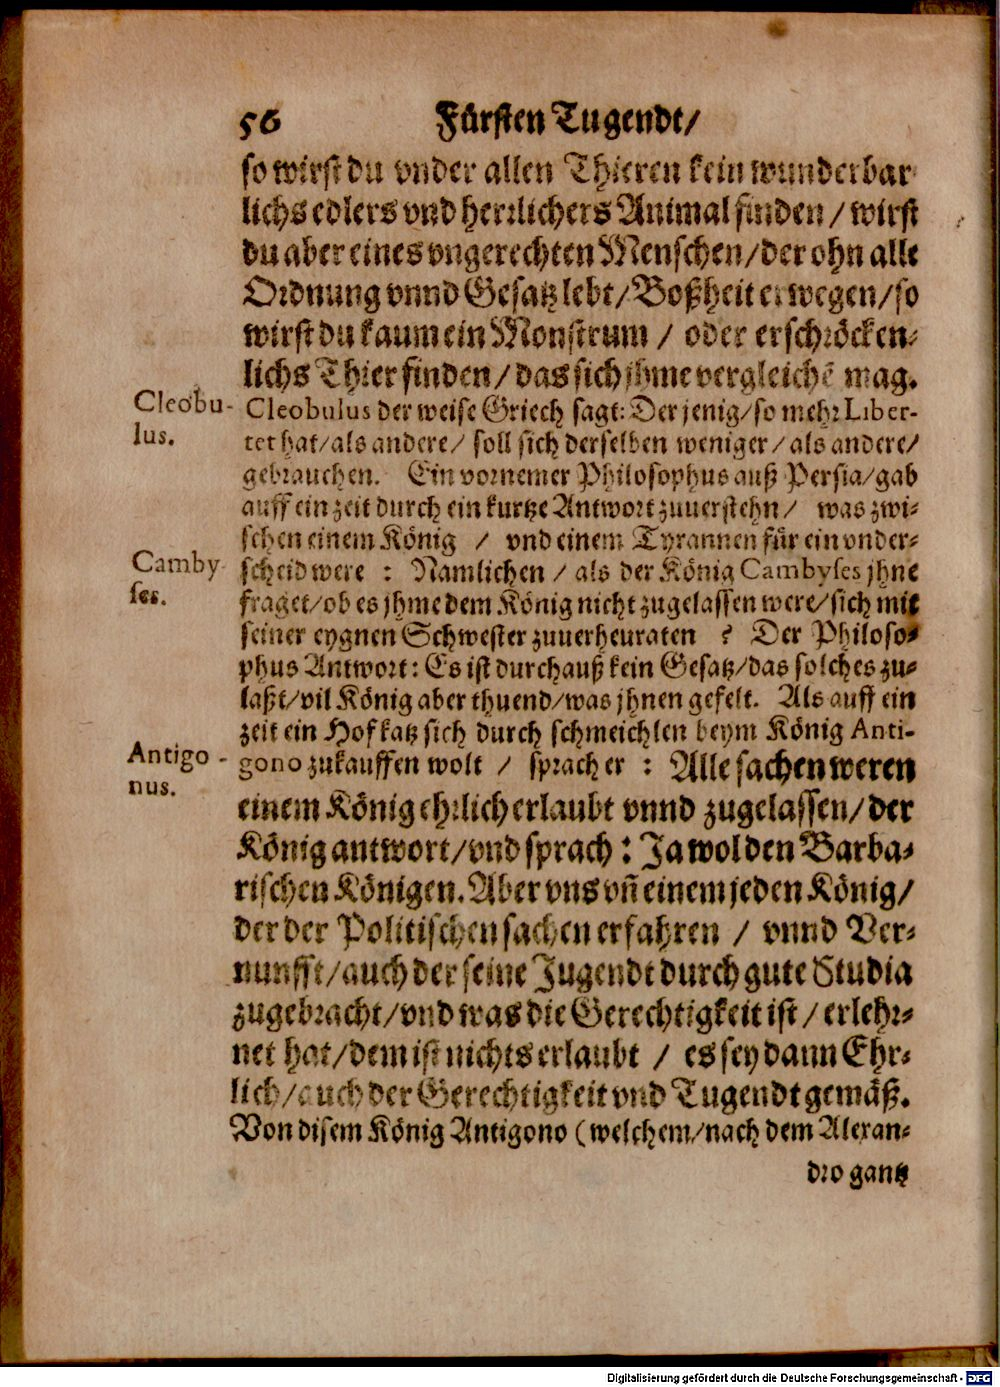 56 Fürsten Tugendt/
so wirst du vnder allen Thieren kein wunderbar
lichs edlers vnd herrlichers Animal finden / wirst
du aber eines vngerechten Menschen/der ohn alle
Ordnung vnnd Gesatz lebt/Boßheit erwegen/so
wirst du kaum ein Monstrum / oder erschröcken-
lichs Thier finden/das sich jhme vergleichẽ mag.
Cleobu-
lus.
Cleobulus der weise Griech sagt: Der jenig/so mehr Liber-
tet hat/als andere/ soll sich derselben weniger/als andere/
gebrauchen. Ein vornemer Philosophus auß Persia/gab
auff ein zeit durch ein kurtze Antwort zuuerstehn/ was zwi-
schen einem König / vnd einem Tyrannen für ein vnder-
Camby
ses.
scheid were : Namlichen / als der König Cambyses jhne
fraget/ob es jhme dem König nicht zugelassen were/sich mit
seiner eygnen Schwester zuuerheuraten ? Der Philoso-
phus Antwort: Es ist durchauß kein Gesatz/das solches zu-
laßt/vil König aber thuend/was jhnen gefelt. Als auff ein
zeit ein Hofkatz sich durch schmeichlen beym König Anti-
Antigo-
nus.
gono zukauffen wolt / sprach er : Alle sachen weren
einem König ehrlich erlaubt vnnd zugelassen/der
König antwort/vnd sprach: Ja wol den Barba-
rischen Königen. Aber vns vñ einem jeden König/
der der Politischen sachen erfahren / vnnd Ver-
nunfft/auch der seine Jugendt durch gute Studia
zugebracht/vnd was die Gerechtigkeit ist/erlehr-
net hat/dem ist nichts erlaubt / es sey dann Ehr-
lich/auch der Gerechtigkeit vnd Tugendt gemäß.
Von disem König Antigono (welchem/nach dem Alexan-
dro gantz
Digitalisierung gefördert durch die Deutsche Forschungsgemeinschaft - DFG